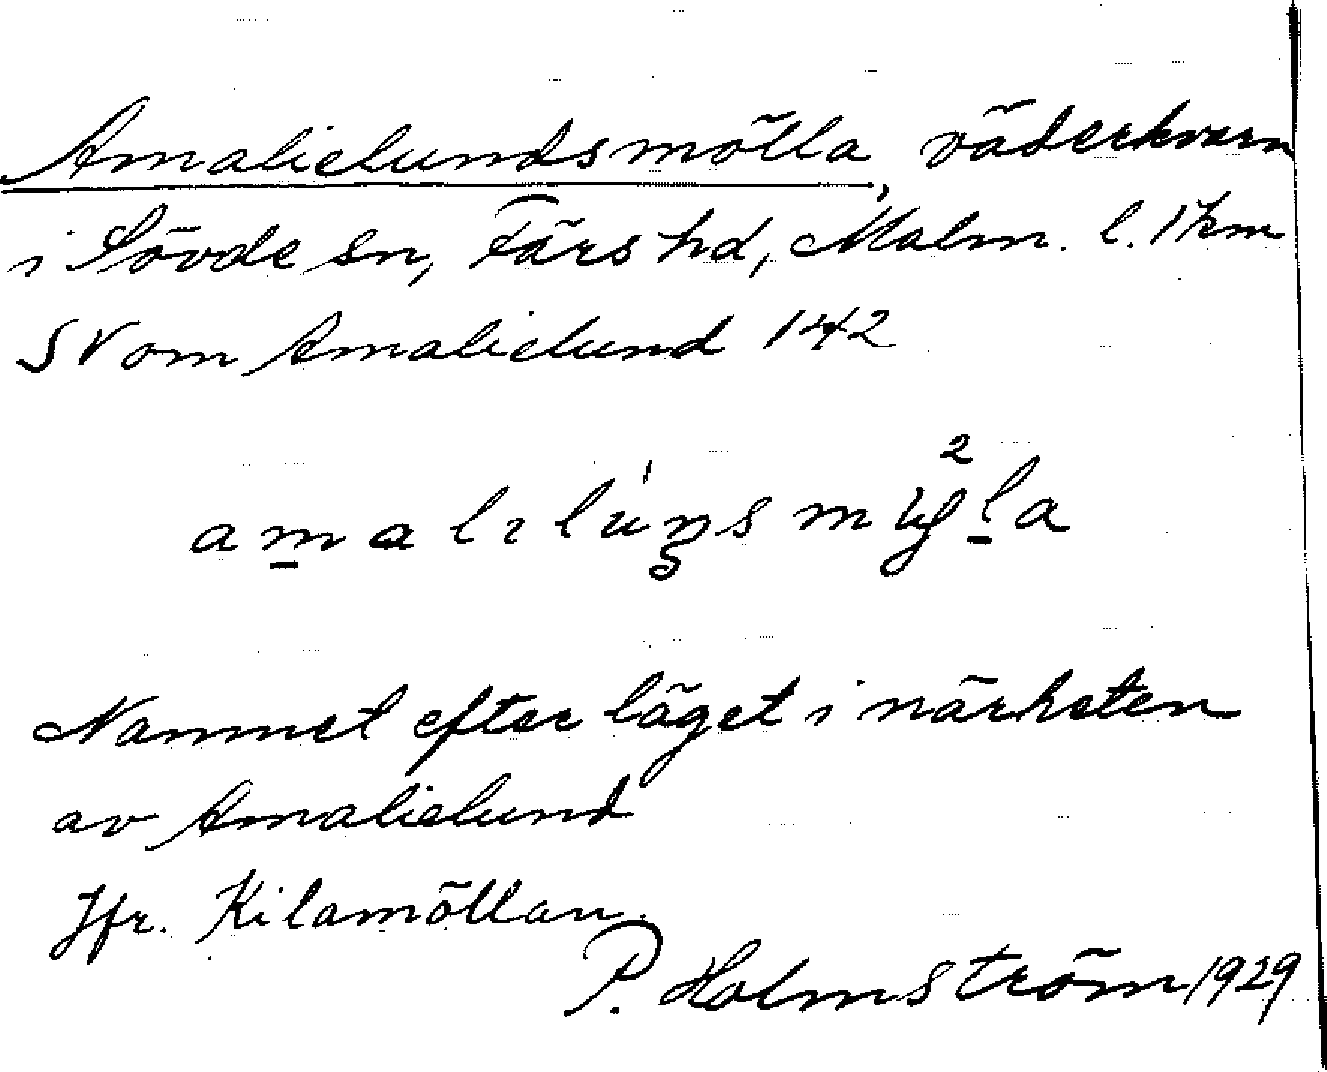 Amalielundsmölla, väderkvarn
i Sövde sn, Färs hd, Malm. l. 1 km
SV om Amalielund 142
amalılúns my²la
Namnet efter läget i närheten
av Amalielund
Jfr. Kilamöllan.
P. Holmström 1929